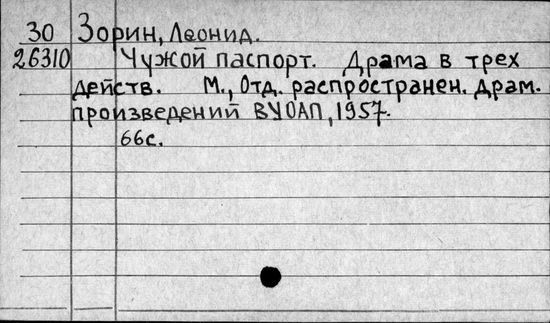 30 Зорин, Леонид.
26310 Чужой паспорт. Драма в трех
действ. М., Отд. распространен. драм.
произведений ВУОАП, 1957.
66с.